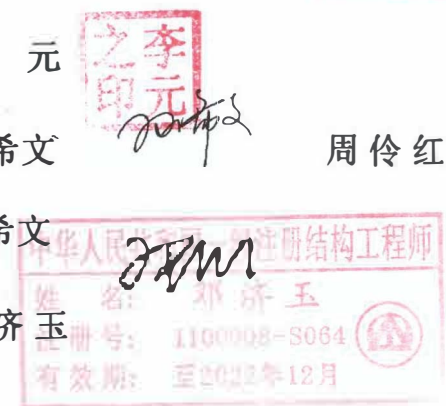 元
之李
印元
希文 周伶红
希文
中华人民共和国一级注册结构工程师
姓 名: 邓济玉
济玉
注册号: 1100008-S064
有效期: 至2022年12月